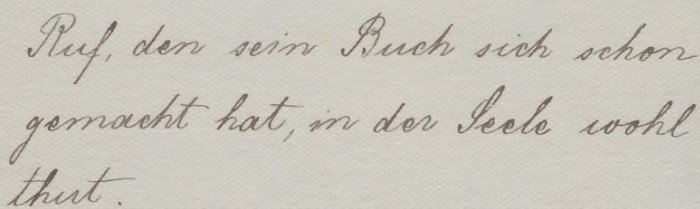 Ruf, den sein Buch sich schon
gemacht hat, in der Seele wohl
thut.